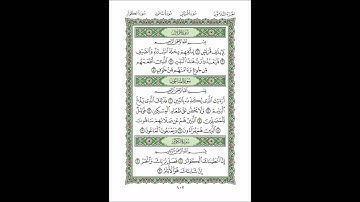 الجزء الثلاثون سورة قريش سورة الماعون سورة الكوثر
سورة قريش
بِسْمِ ٱللَّهِ ٱلرَّحْمَٰنِ ٱلرَّحِيمِ
لِإِيلَٰفِ قُرَيْشٍ ١ إِۦلَٰفِهِمْ رِحْلَةَ ٱلشِّتَآءِ وَٱلصَّيْفِ
٢ فَلْيَعْبُدُوا۟ رَبَّ هَٰذَا ٱلْبَيْتِ ٣ ٱلَّذِىٓ أَطْعَمَهُم
مِّن جُوعٍ وَءَامَنَهُم مِّنْ خَوْفٍۭ ٤
سورة الماعون
بِسْمِ ٱللَّهِ ٱلرَّحْمَٰنِ ٱلرَّحِيمِ
أَرَءَيْتَ ٱلَّذِى يُكَذِّبُ بِٱلدِّينِ ١ فَذَٰلِكَ ٱلَّذِى يَدُعُّ
ٱلْيَتِيمَ ٢ وَلَا يَحُضُّ عَلَىٰ طَعَامِ ٱلْمِسْكِينِ ٣ فَوَيْلٌ
لِّلْمُصَلِّينَ ٤ ٱلَّذِينَ هُمْ عَن صَلَاتِهِمْ سَاهُونَ
٥ ٱلَّذِينَ هُمْ يُرَآءُونَ ٦ وَيَمْنَعُونَ ٱلْمَاعُونَ ٧
سورة الكوثر
بِسْمِ ٱللَّهِ ٱلرَّحْمَٰنِ ٱلرَّحِيمِ
إِنَّآ أَعْطَيْنَٰكَ ٱلْكَوْثَرَ ١ فَصَلِّ لِرَبِّكَ وَٱنْحَرْ ٢
إِنَّ شَانِئَكَ هُوَ ٱلْأَبْتَرُ ٣
٦٠٢